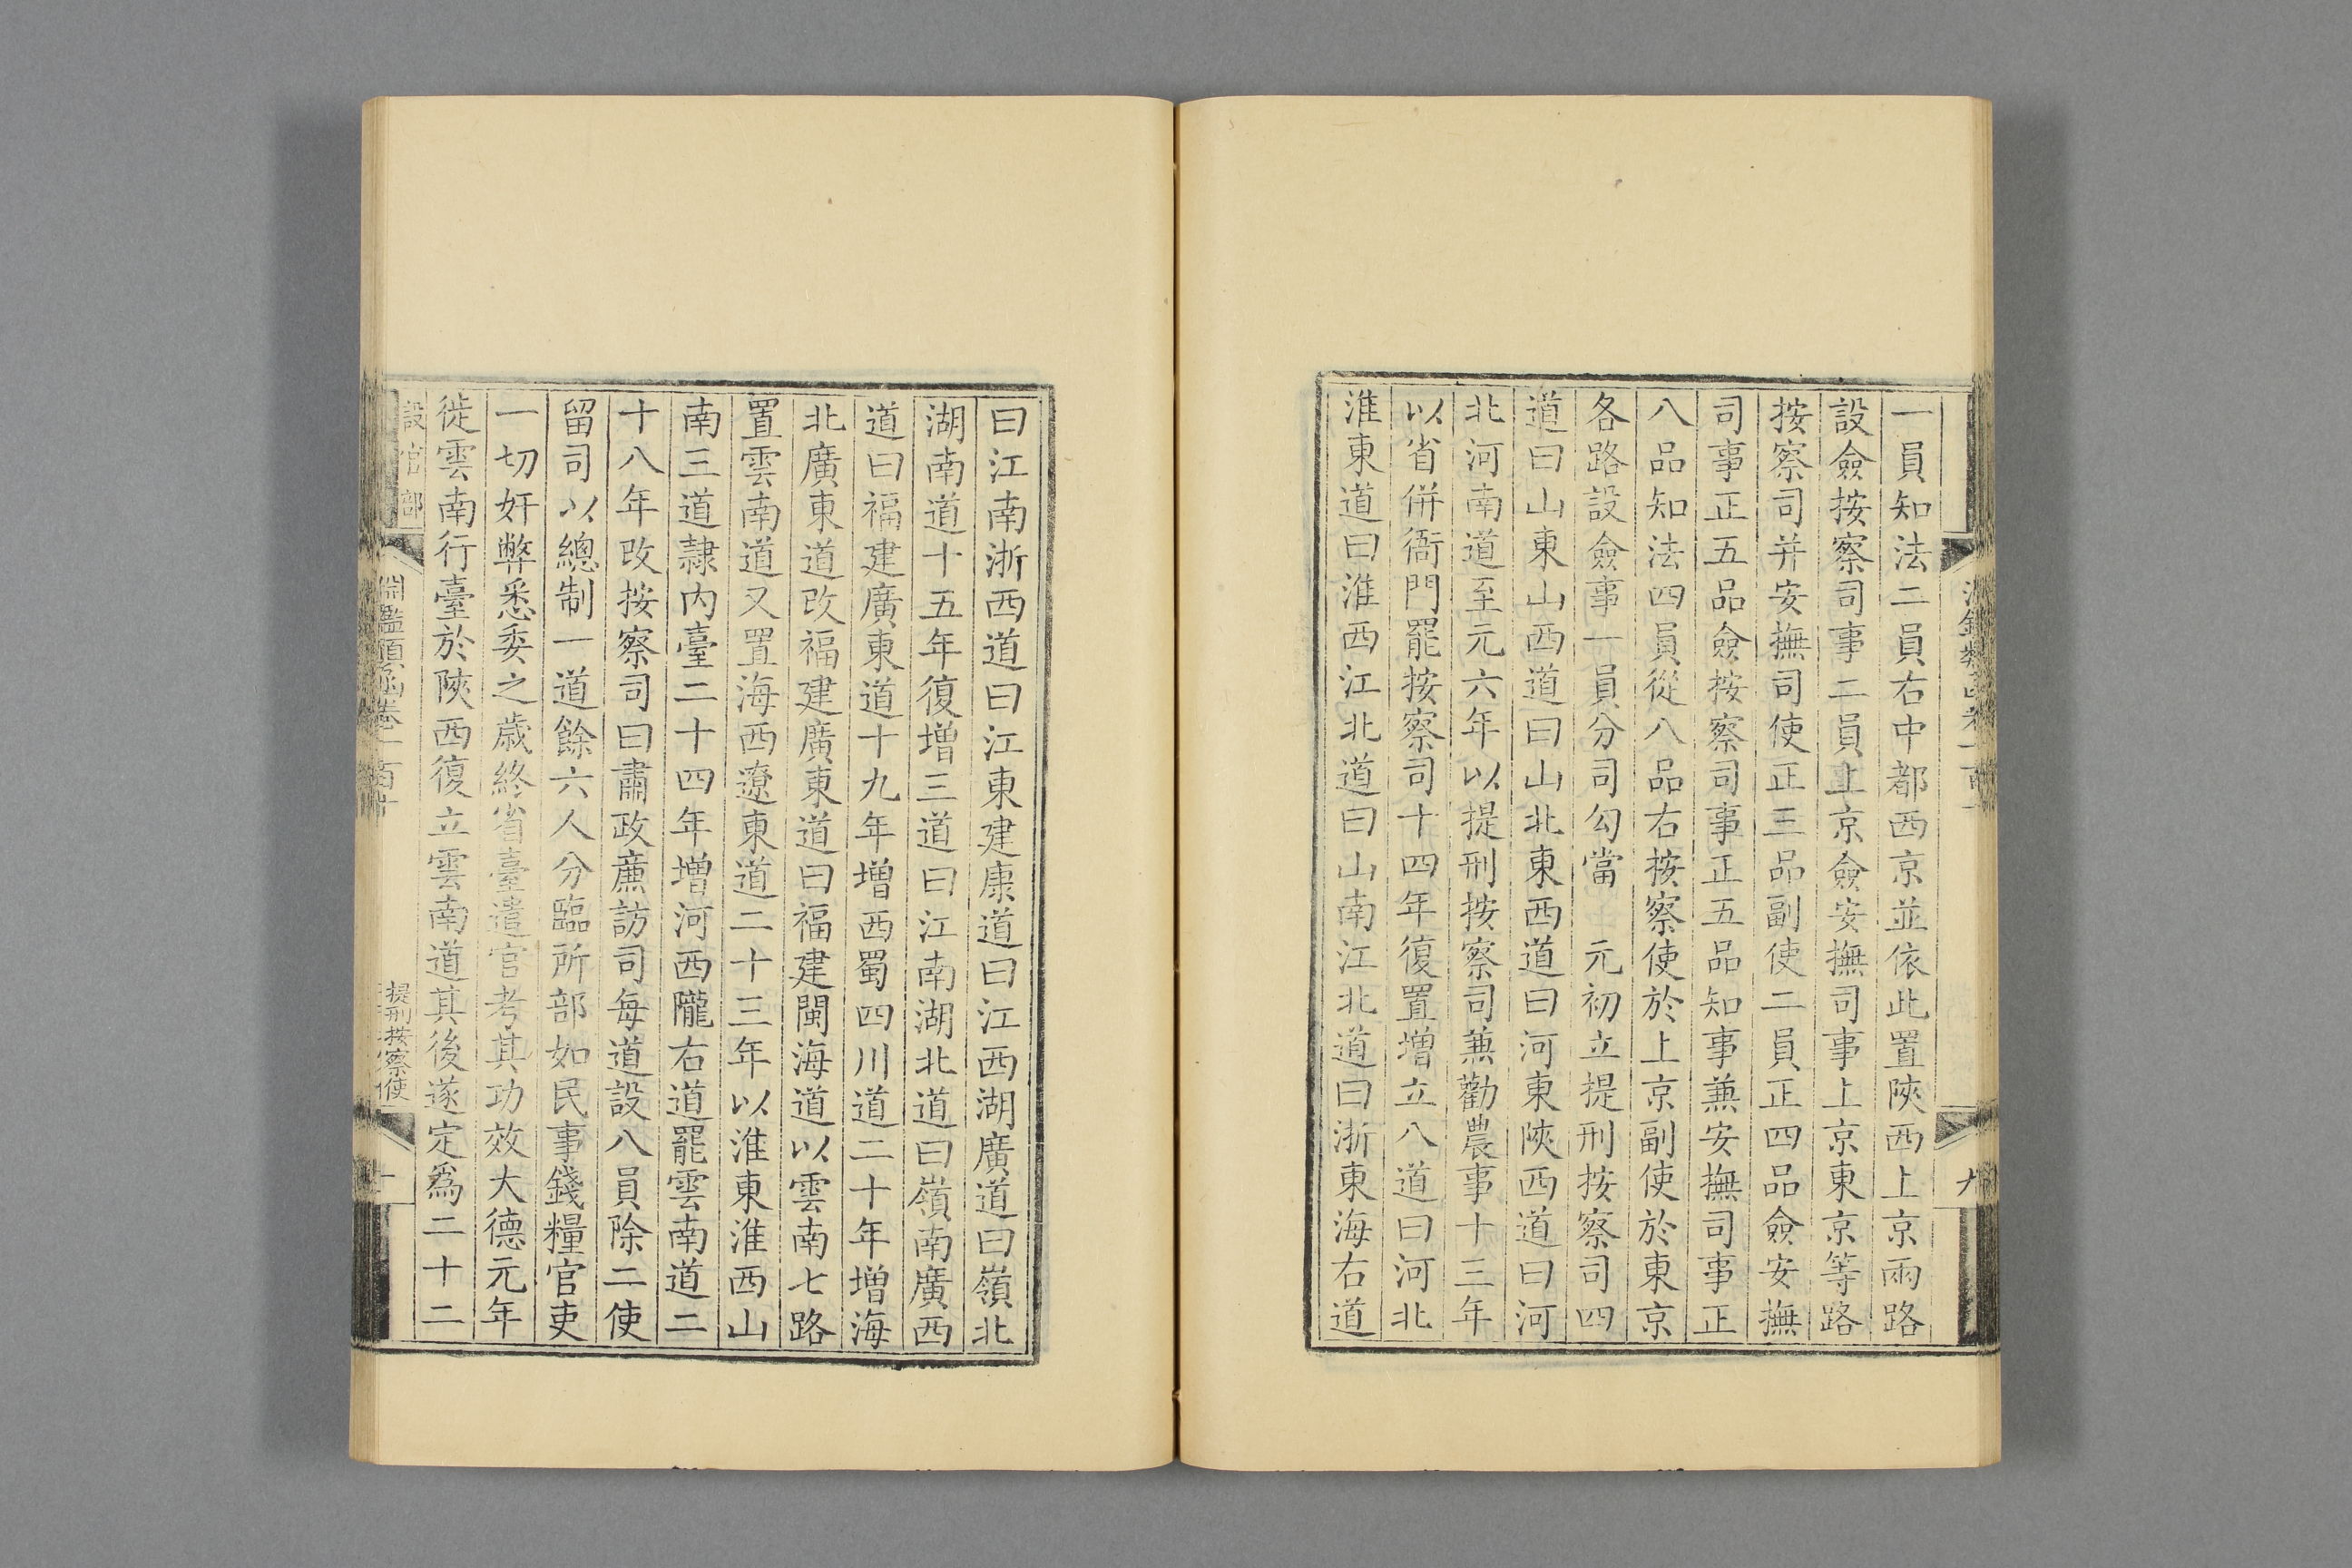 一員知法二員右中都西京並依此置陝西上京兩路
設僉按察司事二員上京僉安撫司事上京東京等路
按察司并安撫司使正三品副使二員正四品僉安撫
司事正五品僉按察司事正五品知事兼安撫司事正
八品知法四員從八品右按察使於上京副使於東京
各路設僉事一員分司勾當　元初立提刑按察司四
道曰山東山西道曰山北東西道曰河東陝西道曰河
北河南道至元六年以提刑按察司兼勸農事十三年
以省併衙門罷按察司十四年復置增立八道曰河北
淮東道曰淮西江北道曰山南江北道曰浙東海右道
曰江南浙西道曰江東建康道曰江西湖廣道曰嶺北
湖南道十五年復增三道曰江南湖北道曰嶺南廣西
道曰福建廣東道十九年增西蜀四川道二十年增海
北廣東道改福建廣東道曰福建閩海道以雲南七路
置雲南道又置海西遼東道二十三年以淮東淮西山
南三道隷內臺二十四年增河西隴右道罷雲南道二
十八年改按察司曰肅政廉訪司每道設八員除二使
留司以總制一道餘六人分臨所部如民事錢糧官吏
一切奸弊悉委之歲終省臺遣官考其功效大德元年
徙雲南行臺於陝西復立雲南道其後遂定爲二十二
設官部
淵鑑類函卷一百十
提刑按察使